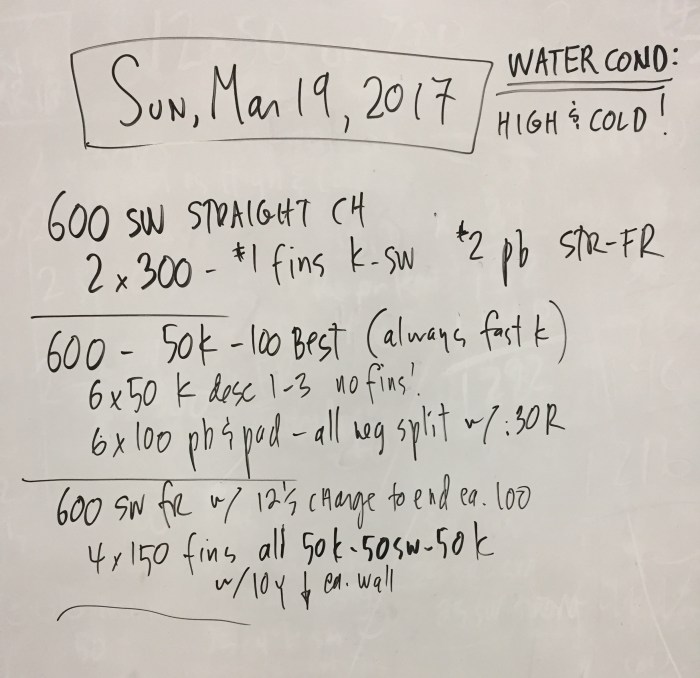 Sun, Mar 19, 2017
WATER COND:
HIGH & COLD!
600 SW STRAIGHT CH
2 x 300 - #1 fins k-sw #2 pb STR-FR
600 - 50k - 100 BEST (always fast k)
6 x 50 k desc 1-3 no fins!
6 x 100 pb & pad - all neg split w/ :30R
600 SW fR w/ 12½ cHange to end ea. 100
4 x 150 fins all 50k-50sw-50k
w/10y ↓ ea. wall